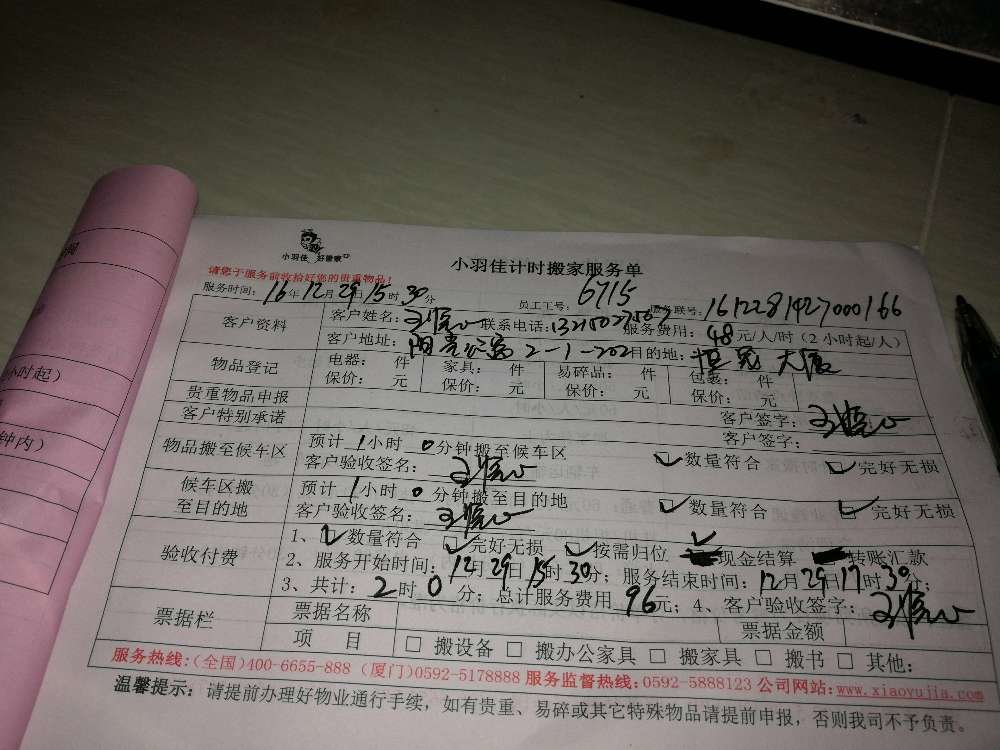 小羽佳 好管家
小羽佳计时搬家服务单
请您于服务前收拾好您的贵重物品!
服务时间: 16年12月29日15时30分 员工工号: 6715 服务联号: 1612281427000166
客户资料 客户姓名: 联系电话: 服务费用: 48元/人/时(2小时起/人)
客户地址: 阳 公寓 2-1-202 目的地: 大厦
物品登记 电器: 件 家具: 件 易碎品: 件 包裹: 件
保价: 元 保价: 元 保价: 元 保价: 元
贵重物品申报 客户签字:
客户特别承诺 客户签字:
物品搬至候车区 预计 1小时 0分钟搬至候车区 数量符合 完好无损
客户验收签名:
候车区搬至目的地 预计 1小时 0分钟搬至目的地 数量符合 完好无损
客户验收签名:
验收付费 1、数量符合 完好无损 按需归位 现金结算 转账汇款
2、服务开始时间: 12月29日15时30分; 服务结束时间: 12月29日17时30分;
3、共计: 2时0分; 总计服务费用 96元; 4、客户验收签字:
票据栏 票据名称 票据金额
项 目 □ 搬设备 □ 搬办公家具 □ 搬家具 □ 搬书 □ 其他:
服务热线:(全国)400-6655-888 (厦门)0592-5178888 服务监督热线:0592-5888123 公司网站:www.xiaoyujia.com
温馨提示: 请提前办理好物业通行手续, 如有贵重、易碎或其它特殊物品请提前申报, 否则我司不予负责。
小时起)
钟内)